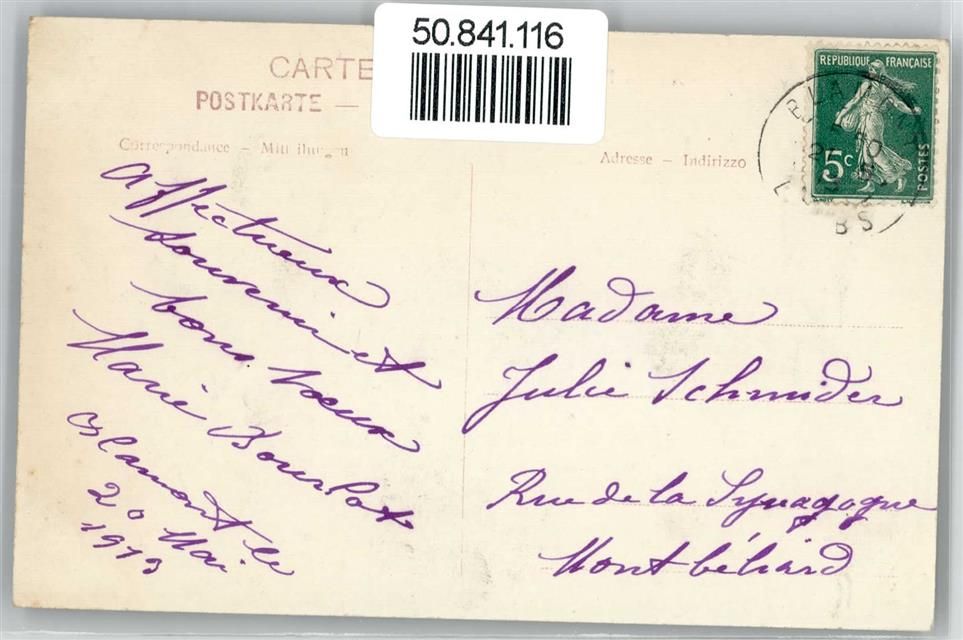 50.841.116
CARTE
POSTKARTE —
Correspondance – Mitteilungen
Adresse – Indirizzo
REPUBLIQUE FRANÇAISE
5c
POSTES
BLA
BS
Affectueux
souvenir et
bons voeux
Marie Bourlot
Blamont le
20 Mai
1913
Madame
Julie Schnider
Rue de la Synagogue
Montbéliard